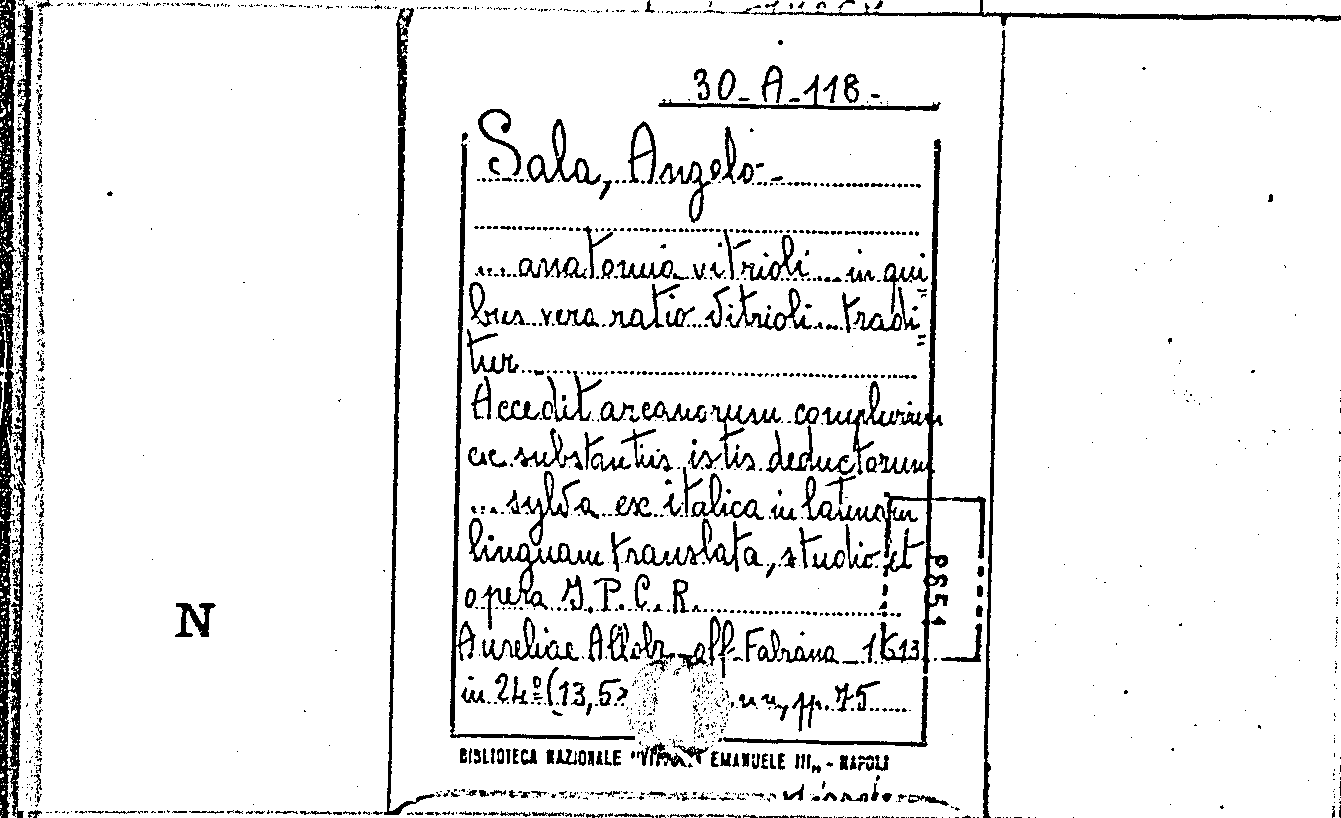 30-A-118-
Sala, Angelo-
... anatomia vitrioli... in qui
bus vera ratio vitrioli... tradi
tur
Accedit arcanorum complurium
ex substantiis istis deductorum
... sylva ex italica in latinam
linguam translata, studio et
opera I.P.C.R.
Aureliae Allobr. off. Fabriana 1613
in 24º (13,5 pp. 75
N
BIBLIOTECA NAZIONALE "VITT. EMANUELE III„ - NAPOLI